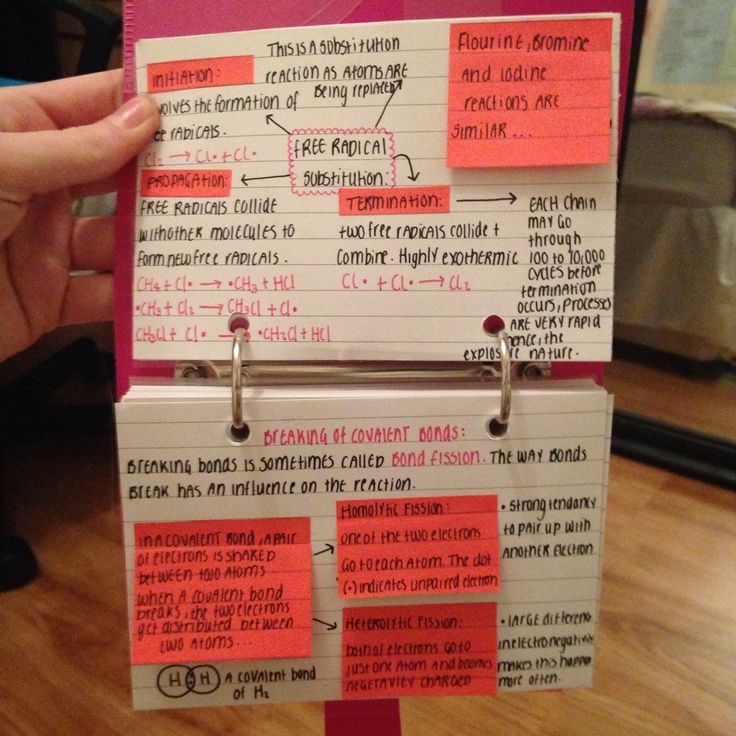 THIS IS A SUBSTITUTION
REACTION AS ATOMS ARE
BEING REPLACED
INITIATION:
VOLVES THE FORMATION OF
EE RADICALS.
Cl₂ → Cl• + Cl•
FREE RADICAL
SUBSTITUTION:
Flourine, Bromine
AND IODINE
REACTIONS ARE
SIMILAR...
PROPAGATION:
FREE RADICALS COLLIDE
WITH OTHER MOLECULES TO
FORM NEW FREE RADICALS.
CH₄ + Cl• → •CH₃ + HCl
•CH₃ + Cl₂ → CH₃Cl + Cl•
CH₃Cl + Cl• → •CH₂Cl + HCl
TERMINATION:
TWO FREE RADICALS COLLIDE +
COMBINE. HIGHLY EXOTHERMIC
Cl• + Cl• → Cl₂
EACH CHAIN
MAY GO
THROUGH
100 TO 10,000
CYCLES BEFORE
TERMINATION
OCCURS, PROCESSES
ARE VERY RAPID
HENCE, THE
NATURE.
BREAKING OF COVALENT BONDS:
BREAKING BONDS IS SOMETIMES CALLED BOND FISSION. THE WAY BONDS
BREAK HAS AN INFLUENCE ON THE REACTION.
IN A COVALENT BOND, A PAIR
OF ELECTRONS IS SHARED
BETWEEN TWO ATOMS
WHEN A COVALENT BOND
BREAKS, THE TWO ELECTRONS
GET DISTRIBUTED BETWEEN
TWO ATOMS...
H H A COVALENT BOND
OF H₂
HOMOLYTIC FISSION:
ONE OF THE TWO ELECTRONS
GO TO EACH ATOM. THE DOT
(•) INDICATES UNPAIRED ELECTRON
• STRONG TENDANCY
TO PAIR UP WITH
ANOTHER ELECTRON
HETEROLYTIC FISSION:
BOTH OF ELECTRONS GO TO
JUST ONE ATOM AND BECOMES
NEGETAVLEY CHARGED
• LARGE DIFFEREN
IN ELECTRONEGATIV
MAKES THIS HAPPE
MORE OFTEN.